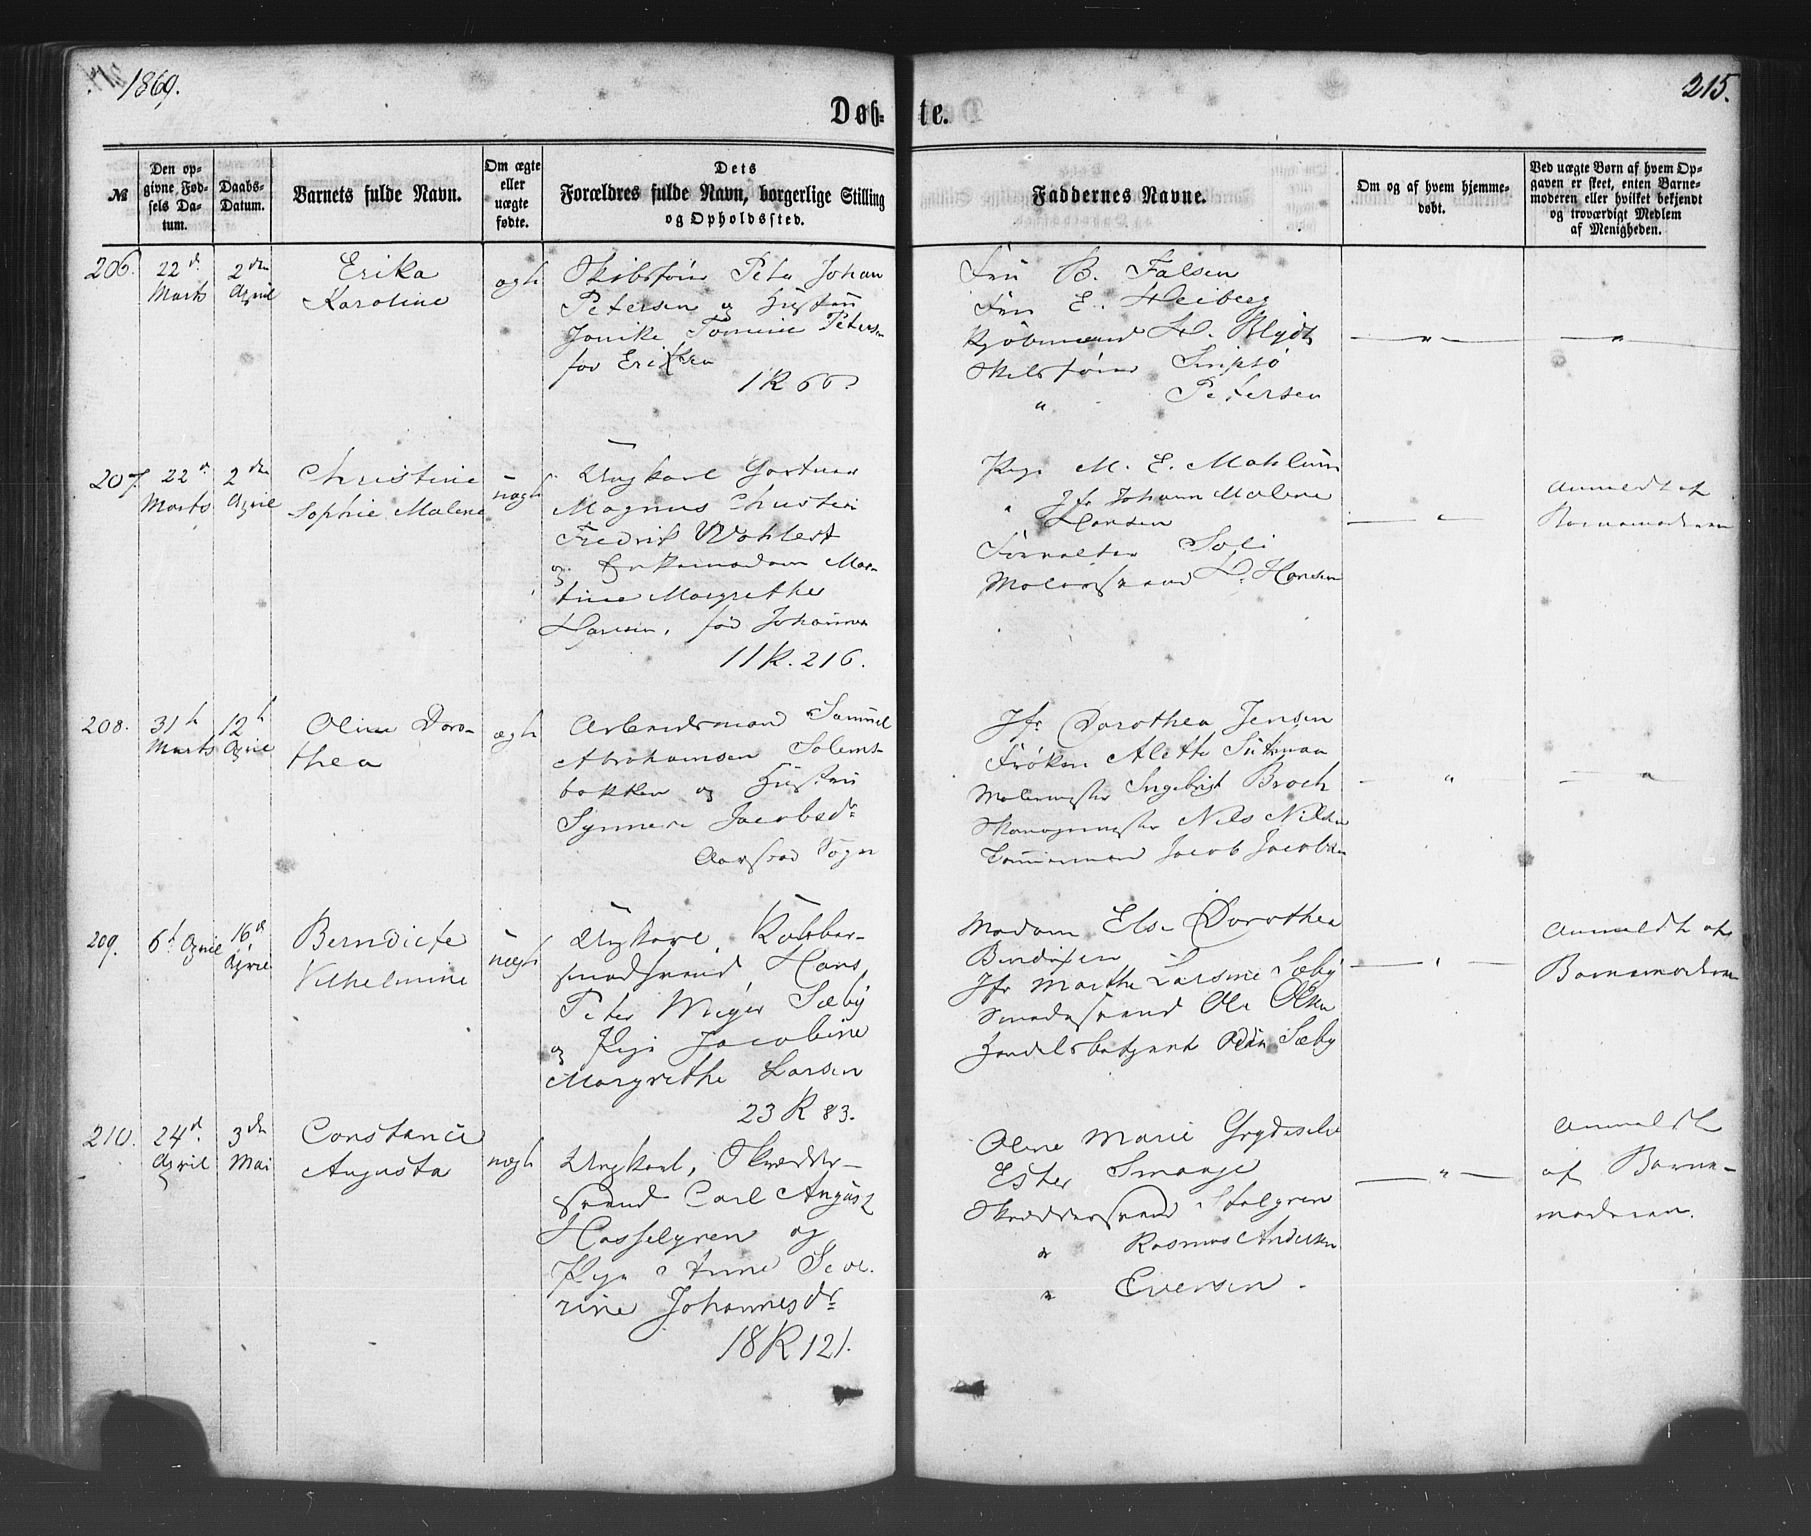 1869.
215.
Døb-
te.
№
Den op-
givne Fød-
sels Da-
tum.
Daabs-
Datum.
Barnets fulde Navn.
Om ægte
eller
uægte
fødte.
Dets
Forældres fulde Navn, borgerlige Stilling
og Opholdssted.
Faddernes Navne.
Om og af hvem hjemme-
døbt.
Ved uægte Børn af hvem Op-
gaven er skeet, enten Barne-
moderen eller hvilket bekjendt
og troværdigt Medlem
af Menigheden.
206.
22d.
Marts
2den
April
Erika
Karoline
ægte
Skibsfører Peter Johan
Petersen og Hustru
Petersen
født Eriksen
1 R 66.
Fru B. Falsen
Fru E. Heiberg
Kjøbmand H. Blydt
Skibsfører
" Petersen
207.
22d.
Marts
2den
April
Christine
Sophie Malene
uægte
Ungkarl Gartner
Magnus Christian
Fredrik Wohlert
og Enkemadam Mar-
tine Margrethe
Hansen, fød Johannes
11 R. 216.
Pige M. E. Mohlum
" Jfr Johann Malene
Hansen
Forvalter
Malersvend H. Hansen
Anmeldt af
Barnemoderen
208.
31t
Marts
12t
April
Oline Doro-
thea
ægte
Arbeidsmand Samuel
Abrahamsen Solems-
bakken og Hustru
Synneve Jacobsdr
Aarstad Sogn
Jfr Dorothea Jensen
Frøken Alette
Malermester Ingebrigt Broch
Skomagermester Nils Nilsen
Tømmermand Jacob Jacobsen
"
"
209.
6t April
16d
April
Berndicte
Vilhelmine
uægte
Ungkarl, Kobber-
smedsvend Hans
Peter Meyer Sæby
og Pige Jacobine
Margrethe Larsen
23 R 83.
Madam Else Dorothea
Bendixen
Jfr Marthe Larsine Sæby
Smedesvend Ole Olsen
Handelsbetjent Sæby
Anmeldt af
Barnemoderen
210.
24d.
April
3den
Mai
Constance
Augusta
uægte
Ungkarl, Skrædder-
svend Carl August
Hasselgren og
Pige Anne Seve-
rine Johannesdr
18 R 121.
Oline Marie
Ester
Skræddersvend Stalgren
" Rasmus Andersen
" Eversen.
"
Anmeldt
af Barne-
moderen.